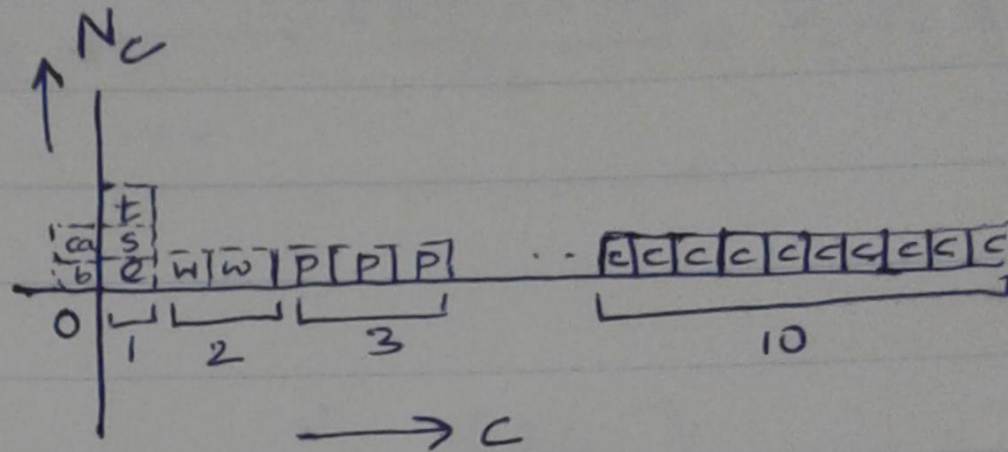 Nc
t
ca s
b e w w p p p .. c c c c c c c c c c
0 1 2 3 10
c